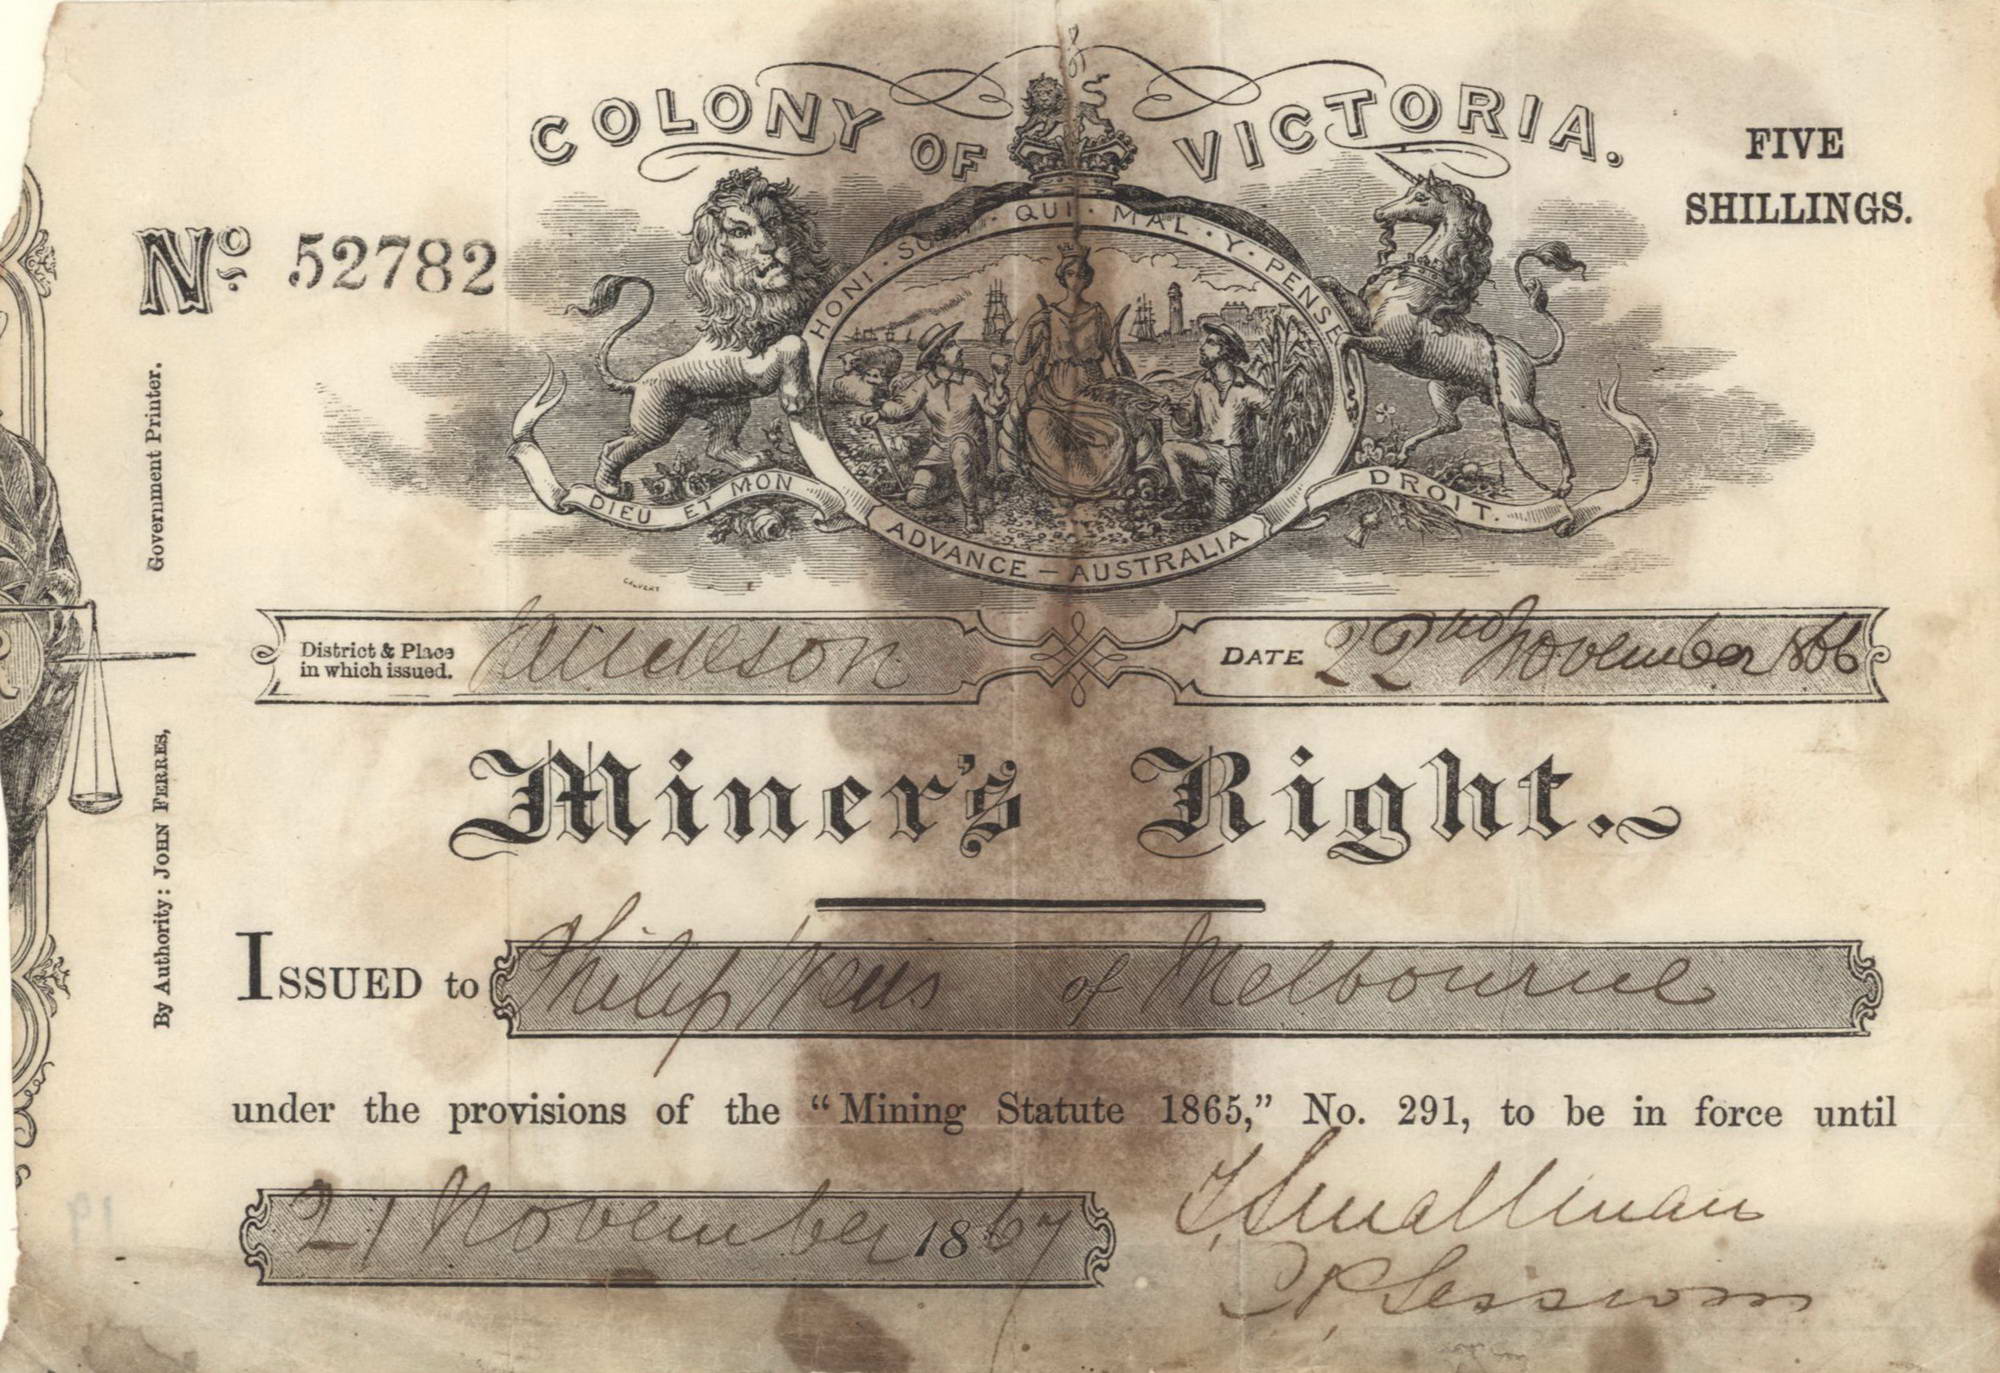 COLONY OF VICTORIA.
FIVE
SHILLINGS.
No. 52782
HONI · SOIT · QUI · MAL · Y · PENSE
DIEU ET MON DROIT.
ADVANCE – AUSTRALIA
CALVERT
District & Place
in which issued.
DATE 22nd November 1866
Miner's Right.
ISSUED to Philip of Melbourne
under the provisions of the "Mining Statute 1865," No. 291, to be in force until
21 November 1867
Smallman
Sessions
By Authority: JOHN FERRES, Government Printer.